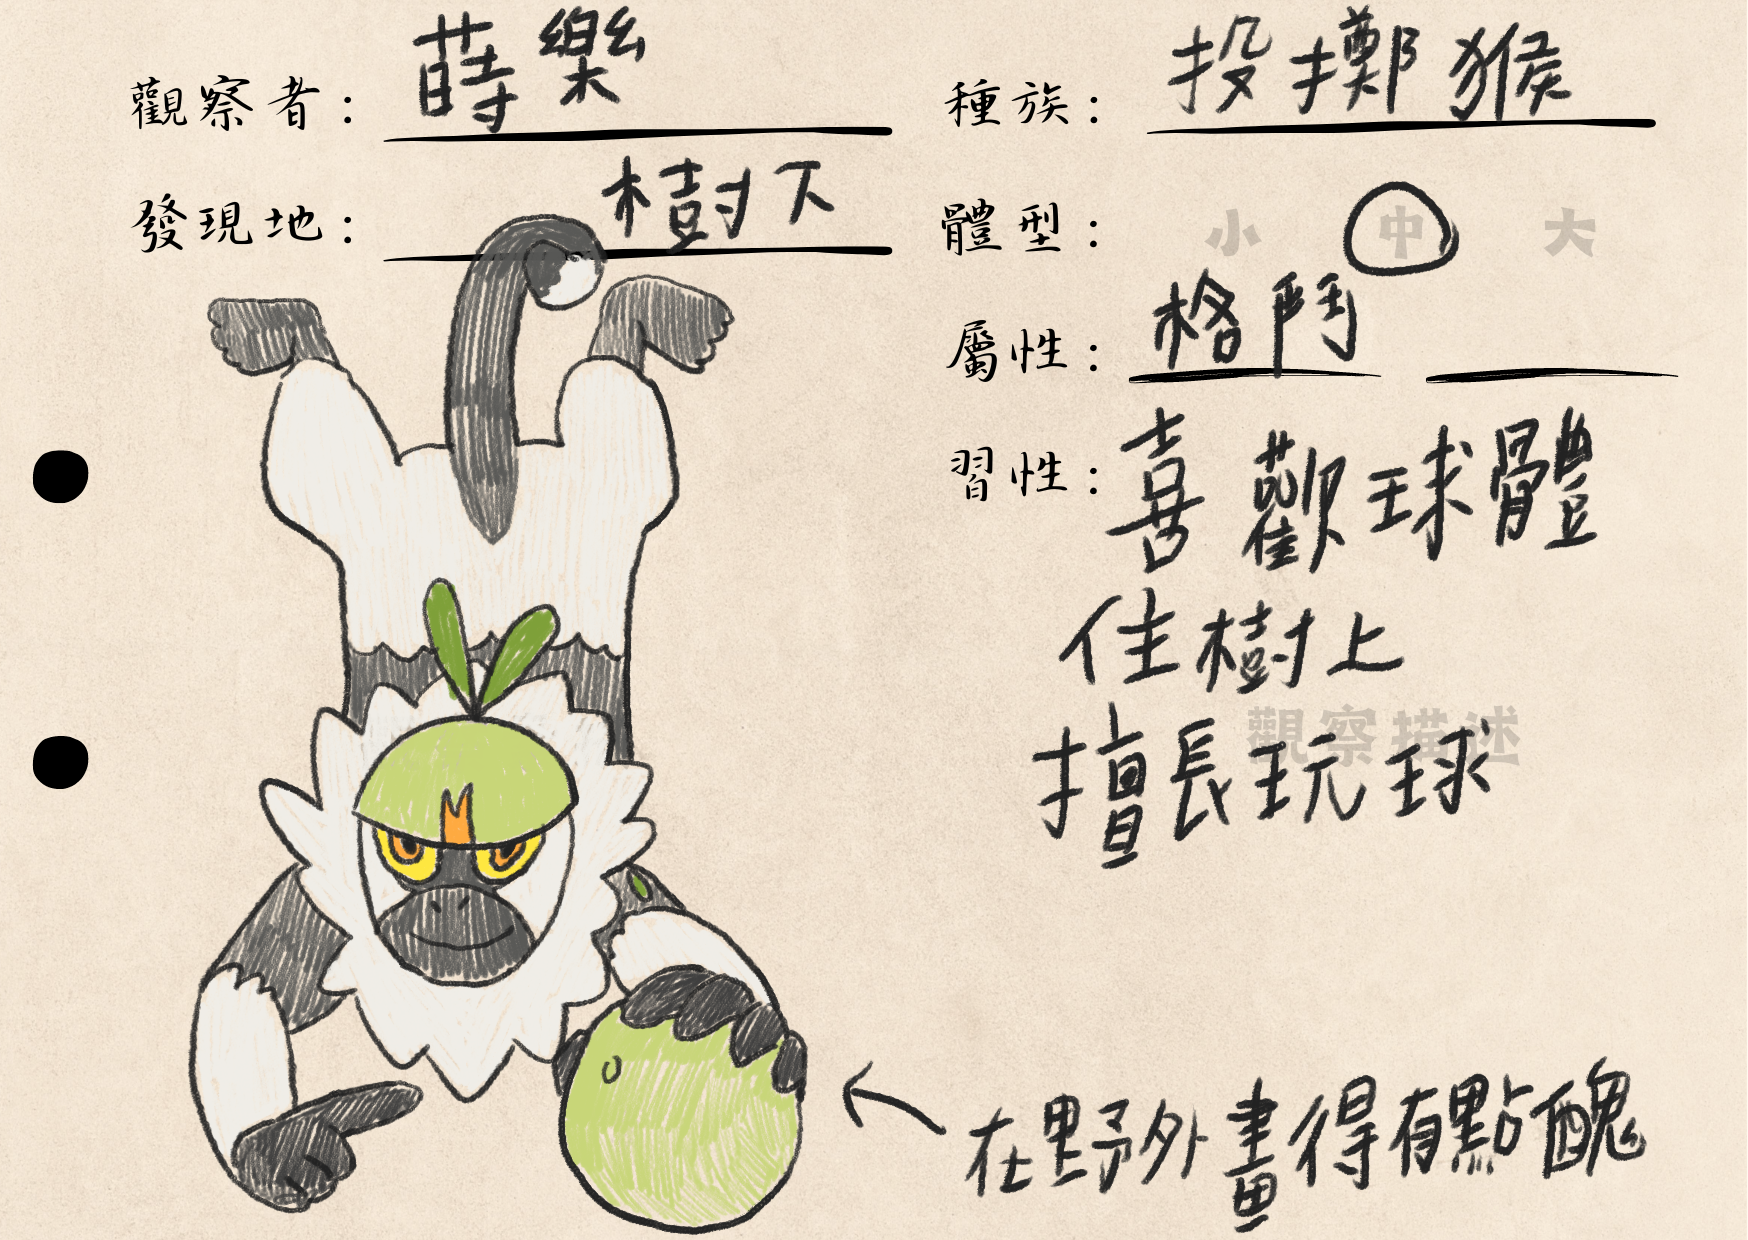 觀察者：蒔樂
種族：投擲猴
發現地：樹下
體型：小 中 大
屬性：格鬥
習性：喜歡球體
住樹上
觀察描述
擅長玩球
在野外畫得有點醜